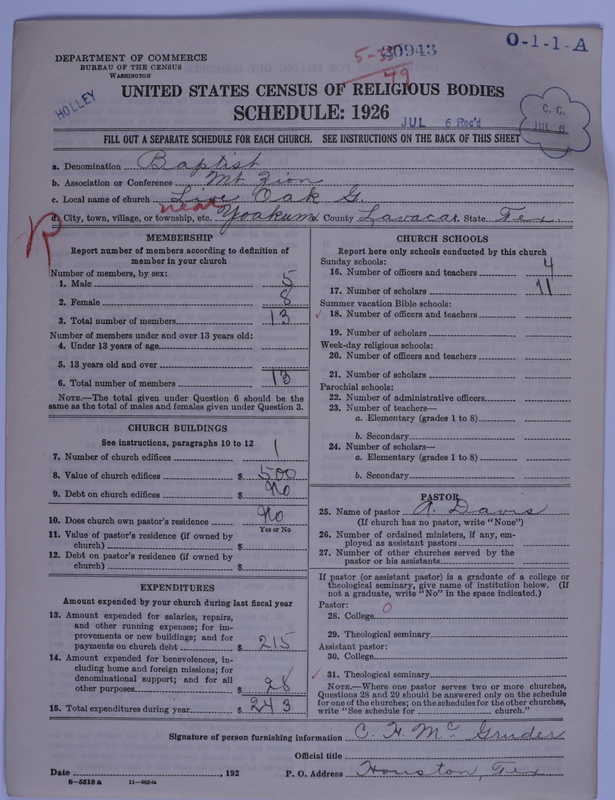 30943
O-1-1-A
49
DEPARTMENT OF COMMERCE
BUREAU OF THE CENSUS
WASHINGTON
HOLLEY
UNITED STATES CENSUS OF RELIGIOUS BODIES
SCHEDULE: 1926
JUL 6 Rec'd
C. C.
JUL 6
FILL OUT A SEPARATE SCHEDULE FOR EACH CHURCH. SEE INSTRUCTIONS ON THE BACK OF THIS SHEET
a. Denomination Baptist
b. Association or Conference Mt. Zion
c. Local name of church Live Oak G.
near
d. City, town, village, or township, etc. Yoakum County Lavaca State Tex.
R
MEMBERSHIP
Report number of members according to definition of
member in your church
Number of members, by sex:
1. Male 5
2. Female 8
3. Total number of members 13
Number of members under and over 13 years old:
4. Under 13 years of age
5. 13 years old and over
6. Total number of members 13
NOTE.—The total given under Question 6 should be the
same as the total of males and females given under Question 3.
CHURCH BUILDINGS
See instructions, paragraphs 10 to 12
7. Number of church edifices 1
8. Value of church edifices $ 500
9. Debt on church edifices $ No
10. Does church own pastor's residence No
Yes or No
11. Value of pastor's residence (if owned by
church) $
12. Debt on pastor's residence (if owned by
church) $
EXPENDITURES
Amount expended by your church during last fiscal year
13. Amount expended for salaries, repairs,
and other running expenses; for im-
provements or new buildings; and for
payments on church debt $ 215
14. Amount expended for benevolences, in-
cluding home and foreign missions; for
denominational support; and for all
other purposes $ 28
15. Total expenditures during year $ 243
CHURCH SCHOOLS
Report here only schools conducted by this church
Sunday schools:
16. Number of officers and teachers 4
17. Number of scholars 11
Summer vacation Bible schools:
18. Number of officers and teachers
19. Number of scholars
Week-day religious schools:
20. Number of officers and teachers
21. Number of scholars
Parochial schools:
22. Number of administrative officers
23. Number of teachers—
a. Elementary (grades 1 to 8)
b. Secondary
24. Number of scholars—
a. Elementary (grades 1 to 8)
b. Secondary
PASTOR
25. Name of pastor A. Davis
(If church has no pastor, write "None")
26. Number of ordained ministers, if any, em-
ployed as assistant pastors
27. Number of other churches served by the
pastor or his assistants
If pastor (or assistant pastor) is a graduate of a college or
theological seminary, give name of institution below. (If
not a graduate, write "No" in the space indicated.)
Pastor:
28. College 0
29. Theological seminary
Assistant pastor:
30. College
31. Theological seminary
NOTE.—Where one pastor serves two or more churches,
Questions 28 and 29 should be answered only on the schedule
for one of the churches; on the schedules for the other churches,
write "See schedule for church."
Signature of person furnishing information C. H. McGruder
Official title
Date , 192 P. O. Address Houston, Tex
8—5518a 11—9054a